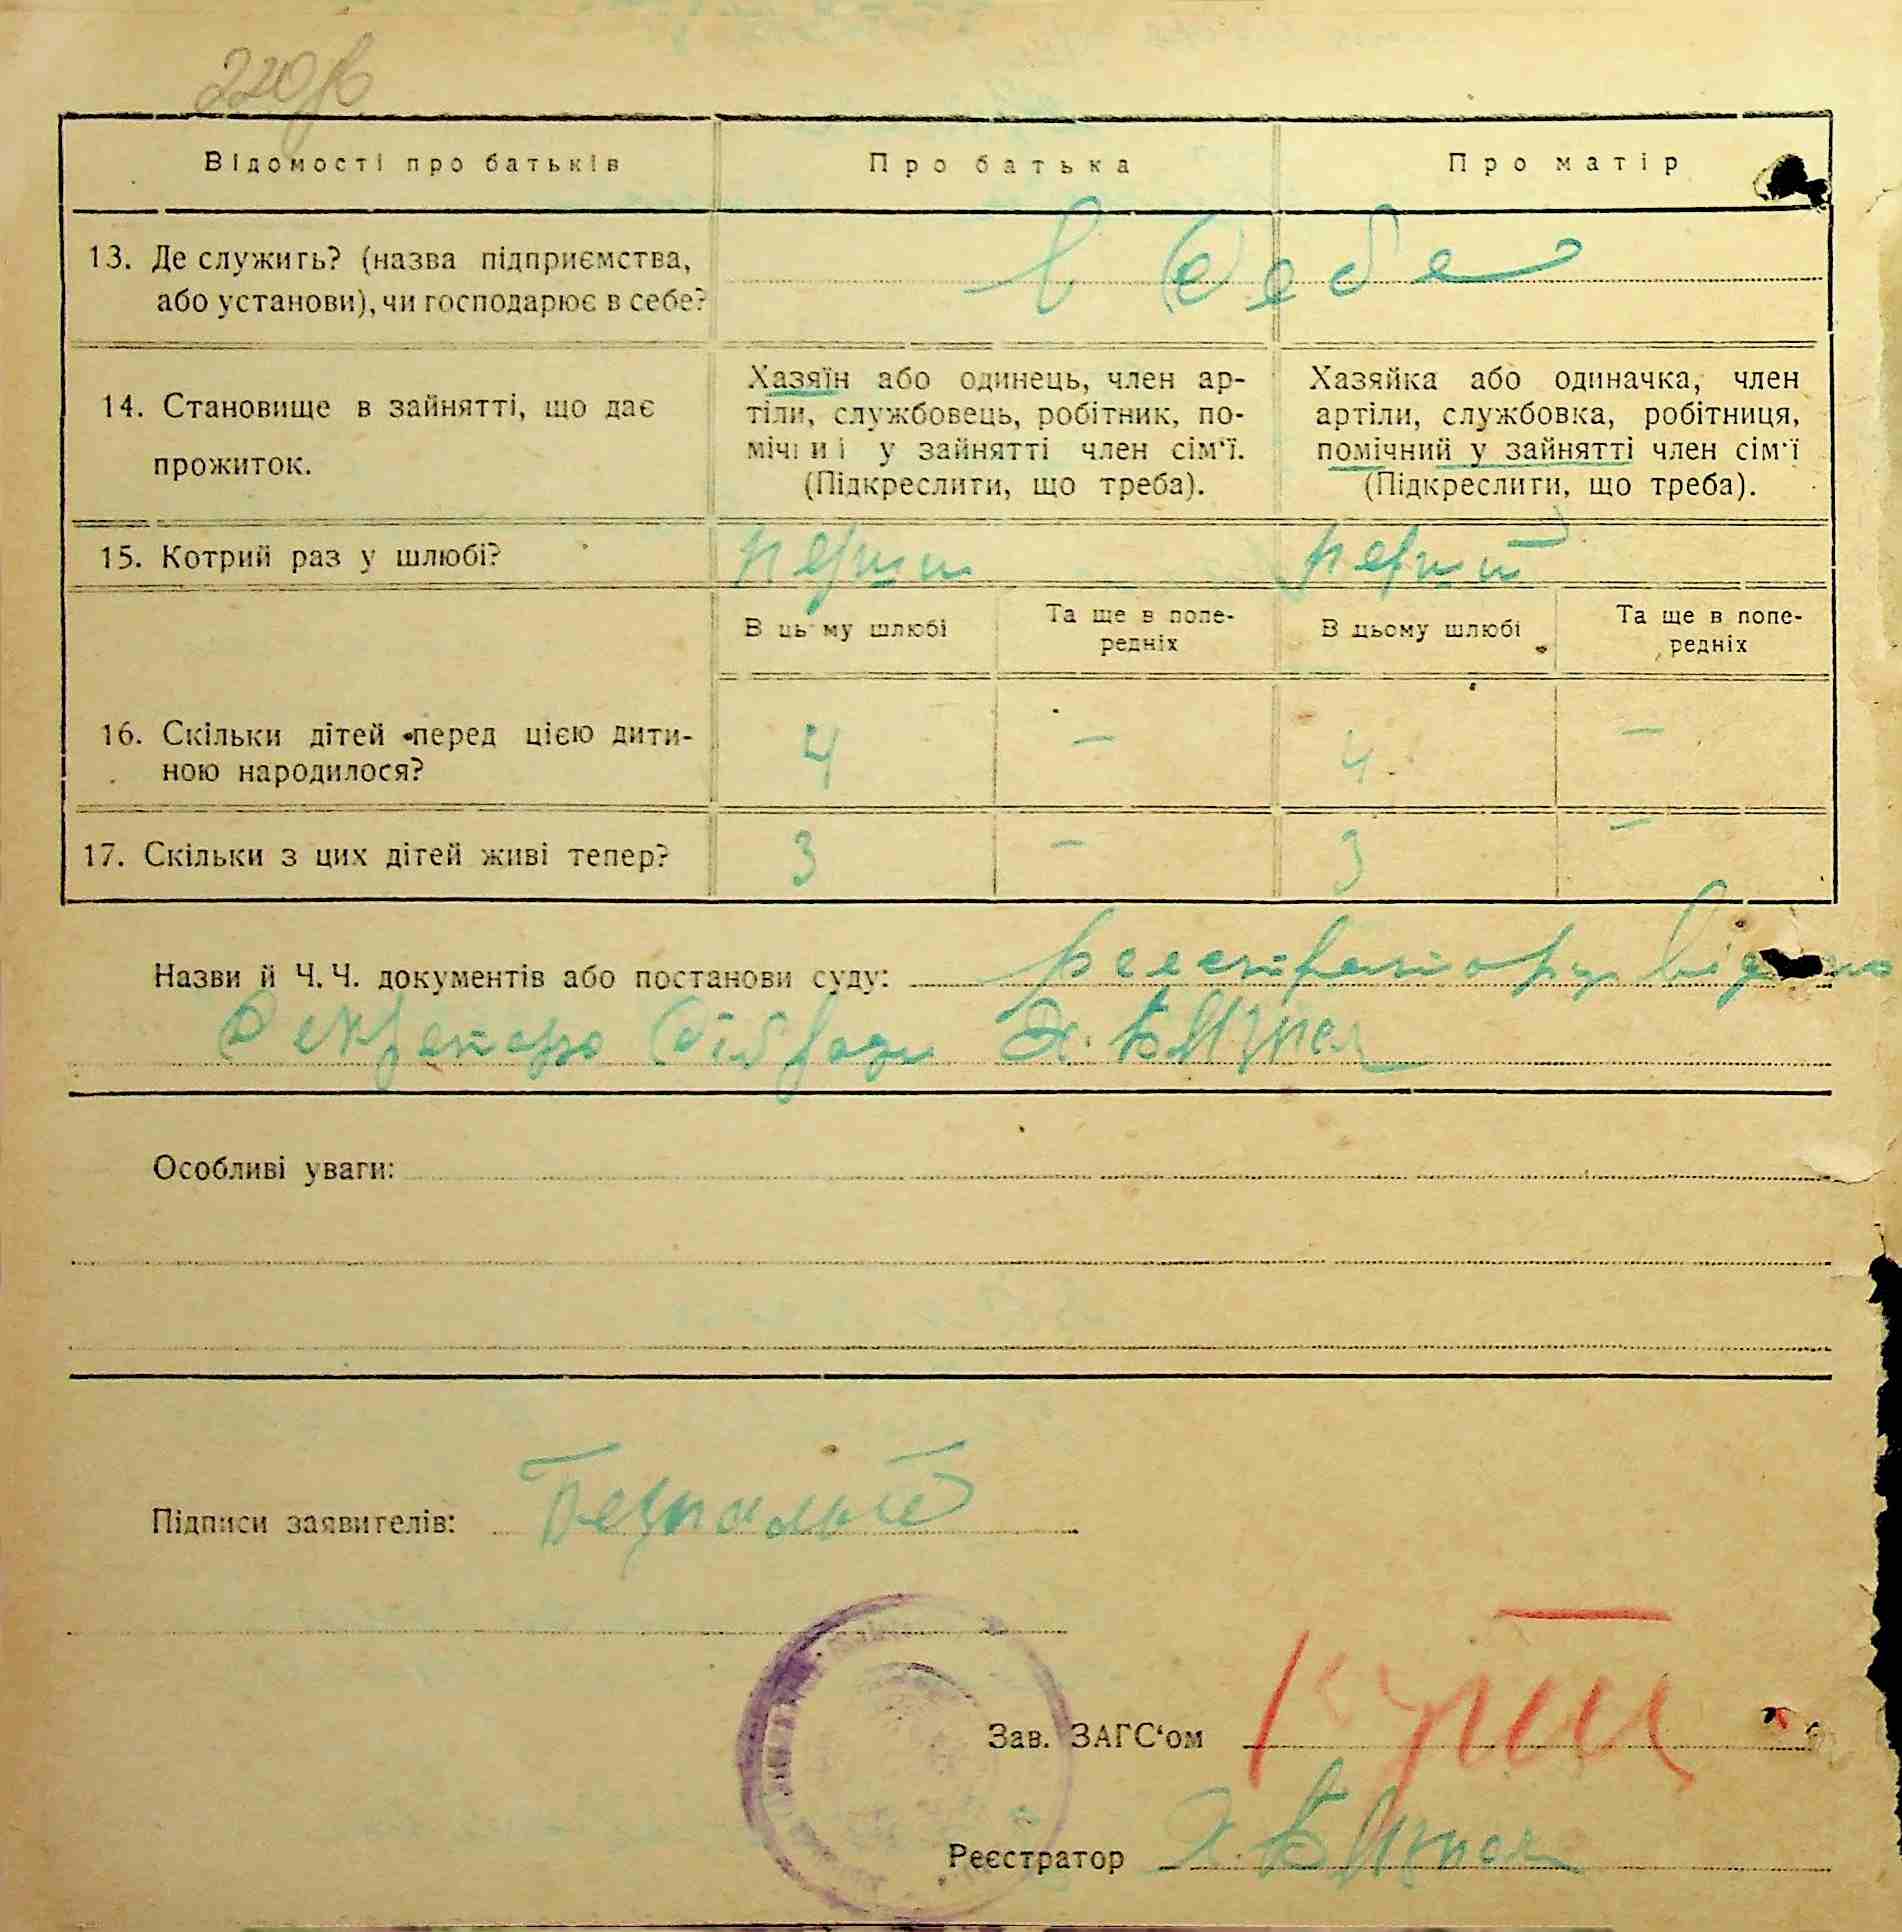 220зв
Відомості про батьків
Про батька
Про матір
13. Де служить? (назва підприємства,
або установи), чи господарює в себе?
в себе
14. Становище в зайнятті, що дає
прожиток.
Хазяїн або одинець, член ар-
тіли, службовець, робітник, по-
мічний у зайнятті член сім'ї.
(Підкреслити, що треба).
Хазяйка або одиначка, член
артіли, службовка, робітниця,
помічний у зайнятті член сім'ї
(Підкреслити, що треба).
15. Котрий раз у шлюбі?
перший
перший
В цьому шлюбі
Та ще в попе-
редніх
В цьому шлюбі
Та ще в попе-
редніх
16. Скільки дітей перед цією дити-
ною народилося?
4
—
4
—
17. Скільки з цих дітей живі тепер?
3
—
3
—
Назви й Ч. Ч. документів або постанови суду: реєстратору відомо
Секретарь сільради
Особливі уваги:
Підписи заявителів:
Зав. ЗАГС'ом
Реєстратор